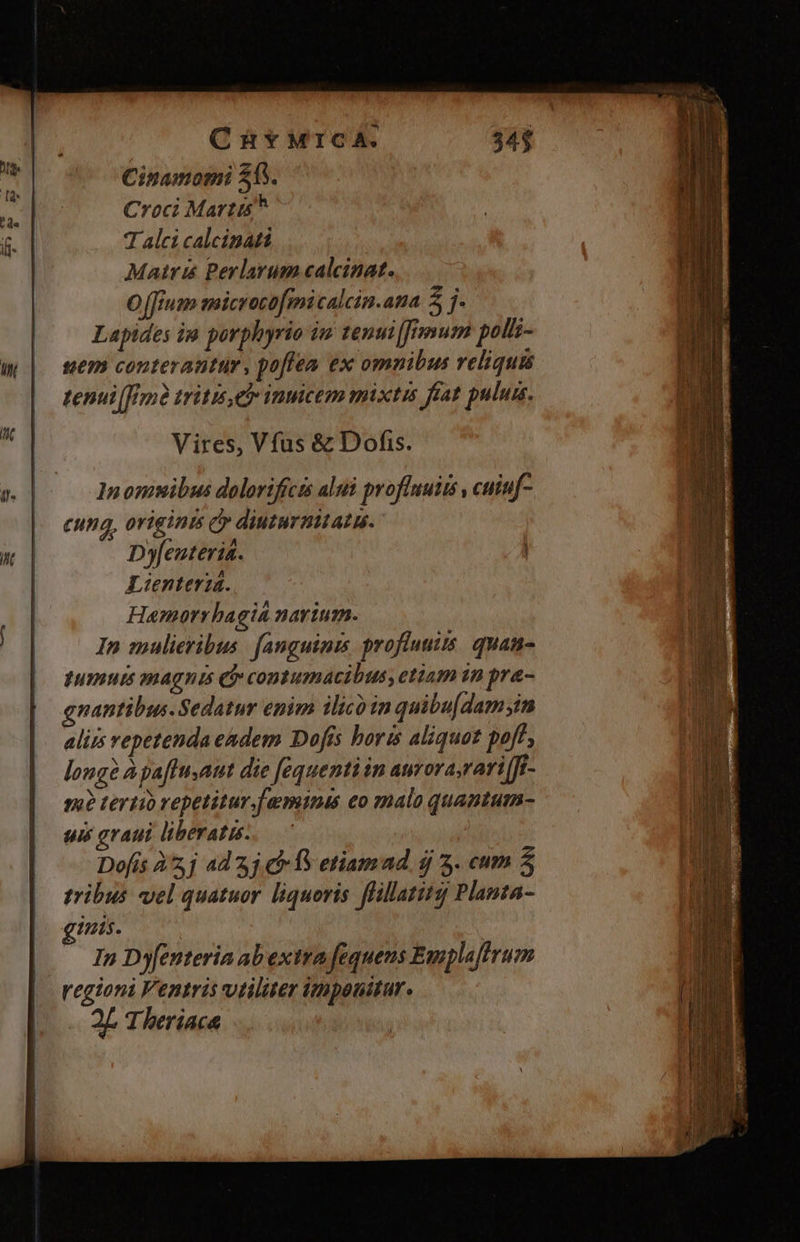 CHYMICA. 345
Cinamomi ℥ß.
Croci Martis
Talci calcinati
Matris Perlarum calcinat.
Oſſium microcoſmi calcin. ana ℥ j.
Lapides in porphyrio in tenuiſſimum polli-
nem conterantur, poſtea ex omnibus reliquis
tenuiſſimè tritis, & inuicem mixtis fiat puluis.
Vires, Vſus & Doſis.
In omnibus dolorificis alui profluuiis, cuiuſ-
cunq; originis & diuturnitatis.
Dyſenteriâ.
Lienteriâ.
Hæmorrhagiâ narium.
In mulieribus ſanguinis profluuiis quan-
tumuis magnis & contumacibus, etiam in præ-
gnantibus. Sedatur enim ilicò in quibuſdam, in
aliis repetenda eadem Doſis horis aliquot poſt,
longè à paſtu, aut die ſequenti in aurora, rariſſi-
mè tertiò repetitur, fæminis eo malo quantum-
uis graui liberatis.
Doſis à ʒj ad ʒj & ß etiam ad ij ʒ. cum ℥
tribus vel quatuor liquoris ſtillatitij Planta-
ginis.
In Dyſenteria ab extra ſequens Emplaſtrum
regioni Ventris vtiliter imponitur.
♃ Theriacæ